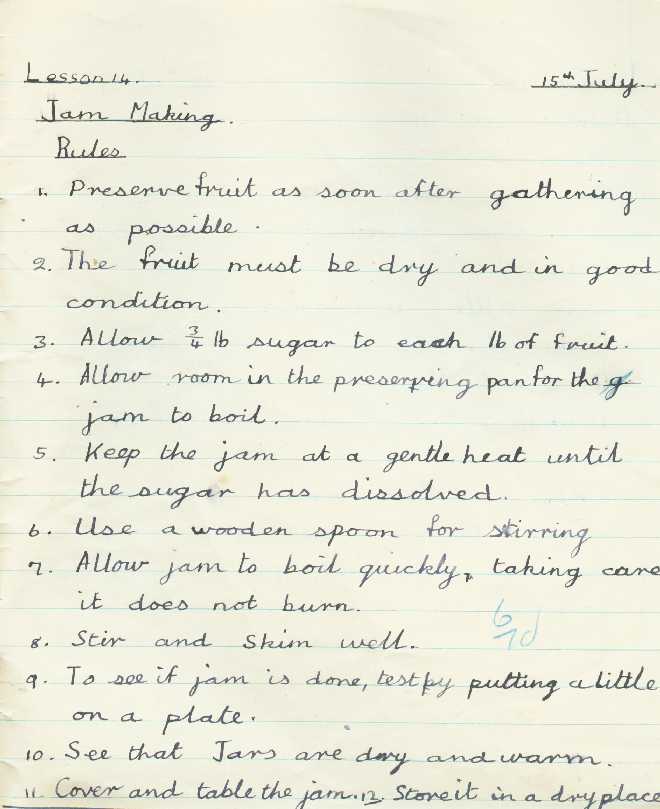 Lesson 14. 15th July.
Jam Making.
Rules
1. Preserve fruit as soon after gathering
as possible.
2. The fruit must be dry and in good
condition.
3. Allow 3/4 lb sugar to each lb of fruit.
4. Allow room in the preserving pan for the
jam to boil.
5. Keep the jam at a gentle heat until
the sugar has dissolved.
6. Use a wooden spoon for stirring
7. Allow jam to boil quickly, taking care
it does not burn.
8. Stir and Skim well.
9. To see if jam is done, test by putting a little
on a plate.
10. See that Jars are dry and warm.
11. Cover and table the jam. 12. Store it in a dry place